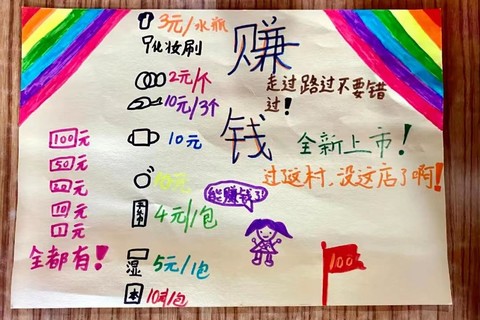 3元/水瓶
化妆刷
2元/个
10元/3个
10元
4元/1包
湿 5元/1包
本 10元/包
100元
50元
20元
10元
1元
全都有!
赚
钱
走过路过不要错
过!
全新上市!
过了这村,没这店了啊!
能赚钱了
100